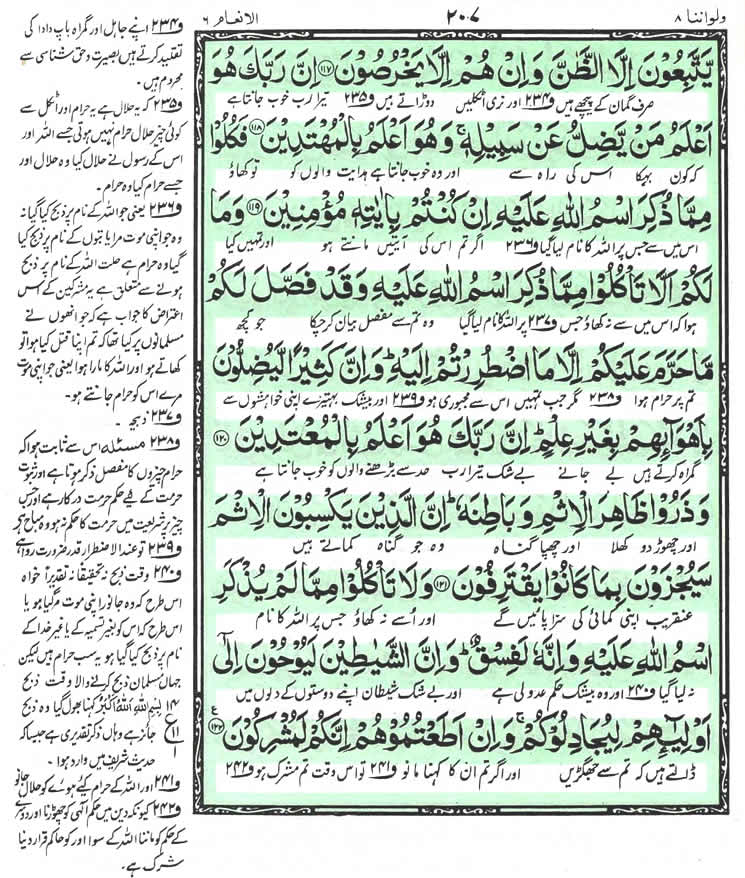 ولواننا ۸
۲۰۷
الانعام ۶
يَتَّبِعُوْنَ اِلَّا الظَّنَّ وَاِنْ هُمْ اِلَّا يَخْرُصُوْنَ ﴿۱۱۷﴾ اِنَّ رَبَّكَ هُوَ
صرف گمان کے پیچھے ہیں و۲۳۴ اور نری اٹکلیں دوڑاتے ہیں و۲۳۵ تیرا رب خوب جانتا ہے
اَعْلَمُ مَنْ يَّضِلُّ عَنْ سَبِيْلِهٖ ۚ وَهُوَ اَعْلَمُ بِالْمُهْتَدِيْنَ ﴿۱۱۸﴾ فَكُلُوْا
کہ کون بہکا اس کی راہ سے اور وہ خوب جانتا ہے ہدایت والوں کو تو کھاؤ
مِمَّا ذُكِرَ اسْمُ اللّٰهِ عَلَيْهِ اِنْ كُنْتُمْ بِاٰيٰتِهٖ مُؤْمِنِيْنَ ﴿۱۱۹﴾ وَمَا
اس میں سے جس پر اللہ کا نام لیا گیا و۲۳۶ اگر تم اس کی آیتیں مانتے ہو اور تمہیں کیا
لَكُمْ اَلَّا تَاْكُلُوْا مِمَّا ذُكِرَ اسْمُ اللّٰهِ عَلَيْهِ وَقَدْ فَصَّلَ لَكُمْ
ہوا کہ اس میں سے نہ کھاؤ جس و۲۳۷ پر اللہ کا نام لیا گیا وہ تم سے مفصل بیان کر چکا جو کچھ
مَّا حَرَّمَ عَلَيْكُمْ اِلَّا مَا اضْطُرِرْتُمْ اِلَيْهِ ؕ وَاِنَّ كَثِيْرًا لَّيُضِلُّوْنَ
تم پر حرام ہوا و۲۳۸ مگر جب تمہیں اس سے مجبوری ہو و۲۳۹ اور بیشک بہتیرے اپنی خواہشوں سے
بِاَهْوَآئِهِمْ بِغَيْرِ عِلْمٍ ؕ اِنَّ رَبَّكَ هُوَ اَعْلَمُ بِالْمُعْتَدِيْنَ ﴿۱۲۰﴾
گمراہ کرتے ہیں بے جانے بے شک تیرا رب حد سے بڑھنے والوں کو خوب جانتا ہے
وَذَرُوْا ظَاهِرَ الْاِثْمِ وَبَاطِنَهٗ ؕ اِنَّ الَّذِيْنَ يَكْسِبُوْنَ الْاِثْمَ
اور چھوڑ دو کھلا اور چھپا گناہ وہ جو گناہ کماتے ہیں
سَيُجْزَوْنَ بِمَا كَانُوْا يَقْتَرِفُوْنَ ﴿۱۲۱﴾ وَلَا تَاْكُلُوْا مِمَّا لَمْ يُذْكَرِ
عنقریب اپنی کمائی کی سزا پائیں گے اور اُسے نہ کھاؤ جس پر اللہ کا نام
اسْمُ اللّٰهِ عَلَيْهِ وَاِنَّهٗ لَفِسْقٌ ؕ وَاِنَّ الشَّيٰطِيْنَ لَيُوْحُوْنَ اِلٰٓى
نہ لیا گیا و۲۴۰ اور وہ بیشک حکم عدولی ہے اور بے شک شیطان اپنے دوستوں کے دلوں میں
اَوْلِيٰٓئِهِمْ لِيُجَادِلُوْكُمْ ۚ وَاِنْ اَطَعْتُمُوْهُمْ اِنَّكُمْ لَمُشْرِكُوْنَ ﴿۱۲۲﴾ ع
ڈالتے ہیں کہ تم سے جھگڑیں اور اگر تم ان کا کہنا مانو و۲۴۱ تو اس وقت تم مشرک ہو و۲۴۲
و۲۳۴ اپنے جاہل اور گمراہ باپ دادا کی
تقلید کرتے ہیں بصیرت و حق شناسی سے
محروم ہیں۔
و۲۳۵ کہ یہ حلال ہے یہ حرام اور اٹکل سے
کوئی چیز حلال حرام نہیں ہوتی جسے اللہ اور
اس کے رسول نے حلال کیا وہ حلال اور
جسے حرام کیا وہ حرام۔
و۲۳۶ یعنی جو اللہ کے نام پر ذبح کیا گیا نہ
وہ جو اپنی موت مرا یا بتوں کے نام پر ذبح کیا
گیا وہ حرام ہے حلت اللہ کے نام پر ذبح
ہونے سے متعلق ہے یہ مشرکین کے اس
اعتراض کا جواب ہے کہ جو انھوں نے
مسلمانوں پر کیا تھا کہ تم اپنا قتل کیا ہوا تو
کھاتے ہو اور اللہ کا مارا ہوا یعنی جو اپنی موت
مرے اس کو حرام جانتے ہو۔
و۲۳۷ ذبیحہ۔
و۲۳۸ مسئلہ اس سے ثابت ہوا کہ
حرام چیزوں کا مفصل ذکر ہوتا ہے اور ثبوت
حرمت کے لیے حکم حرمت درکار ہے اور جس
چیز پر شریعت میں حرمت کا حکم نہ ہو وہ مباح ہے
و۲۳۹ تو عند الاضطرار قدر ضرورت روا ہے
و۲۴۰ وقت ذبح نہ تحقیقًا نہ تقدیرًا خواہ
اس طرح کہ وہ جانور اپنی موت مر گیا ہو یا
اس طرح کہ اس کو بغیر تسمیہ کے یا غیر خدا کے
نام پر ذبح کیا گیا ہو یہ سب حرام ہیں لیکن
جہاں مسلمان ذبح کرنے والا وقت ذبح
۱۴ بِسْمِ اللهِ اَللهُ اَكْبَرُ کہنا بھول گیا وہ ذبح
ع ۱۱ جائز ہے وہاں ذکر تقدیری ہے جیسا کہ
۱ حدیث شریف میں وارد ہوا۔
و۲۴۱ اور اللہ کے حرام کیے ہوئے کو حلال جانو
و۲۴۲ کیونکہ دین میں حکم الٰہی کو چھوڑنا اور دوسرے
کے حکم کو ماننا اللہ کے سوا اور کو حاکم قرار دینا
شرک ہے۔